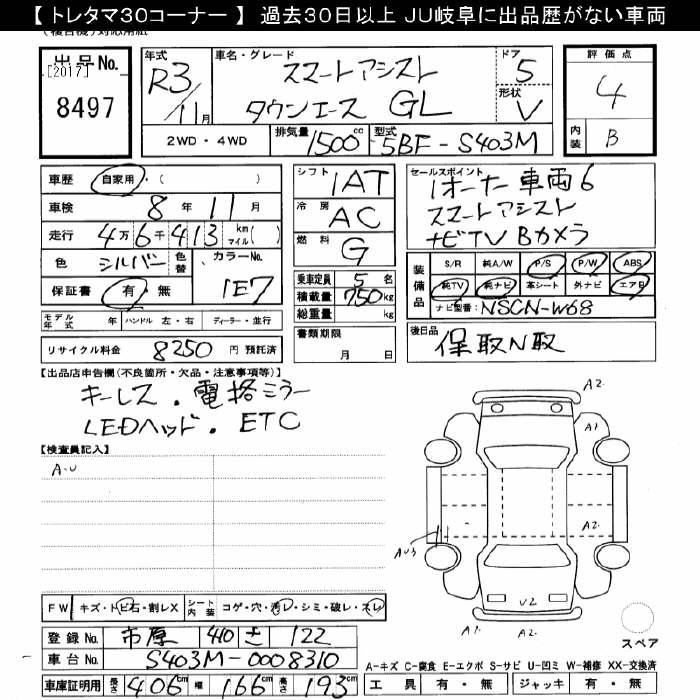 【 トレタマ30コーナー 】 過去30日以上 JU岐阜に出品歴がない車両
出品No.
[2017]
8497
年式 R3/11月
車名・グレード スマートアシスト
タウンエース GL
ドア 5
形状 V
評価点 4
内装 B
2WD・4WD
排気量 1500cc
型式 5BF-S403M
車歴 自家用・( )
車検 8年 11月
走行 4万6千413 km マイル( )
色 シルバー 色替 カラーNo. 1E7
保証書 有・無
モデル年式 年 ハンドル 左・右 ディーラー・並行
リサイクル料金 8250 円 預託済
シフト 1AT
冷房 AC
燃料 G
乗車定員 5名
積載量 750kg
総重量 kg
書類期限
月 日
セールスポイント
1オーナー車両6
スマートアシスト
ナビTV Bカメラ
装備品 S/R 純A/W P/S P/W ABS
純TV 純ナビ 革シート 外ナビ エアB
ナビ型番: NSCN-W68
後日品 保取N取
【出品店申告欄(不良箇所・欠品・注意事項等)】
キーレス.電格ミラー
LEDヘッド.ETC
【検査員記入】
A・U
A2.
A1
AU3
A2.
V2
A2.
A2.
スペア
FW キズ・トビ石・割レX シート内装 コゲ・穴・汚レ・シミ・破レ・スレ
登録No. 市原 410 さ 122
車台No. S403M-0008310
車庫証明用 長さ 406cm 幅 166cm 高さ 193cm
A-キズ C-腐食 E-エクボ S-サビ U-凹ミ W-補修 XX-交換済
工具 有・無 ジャッキ 有・無